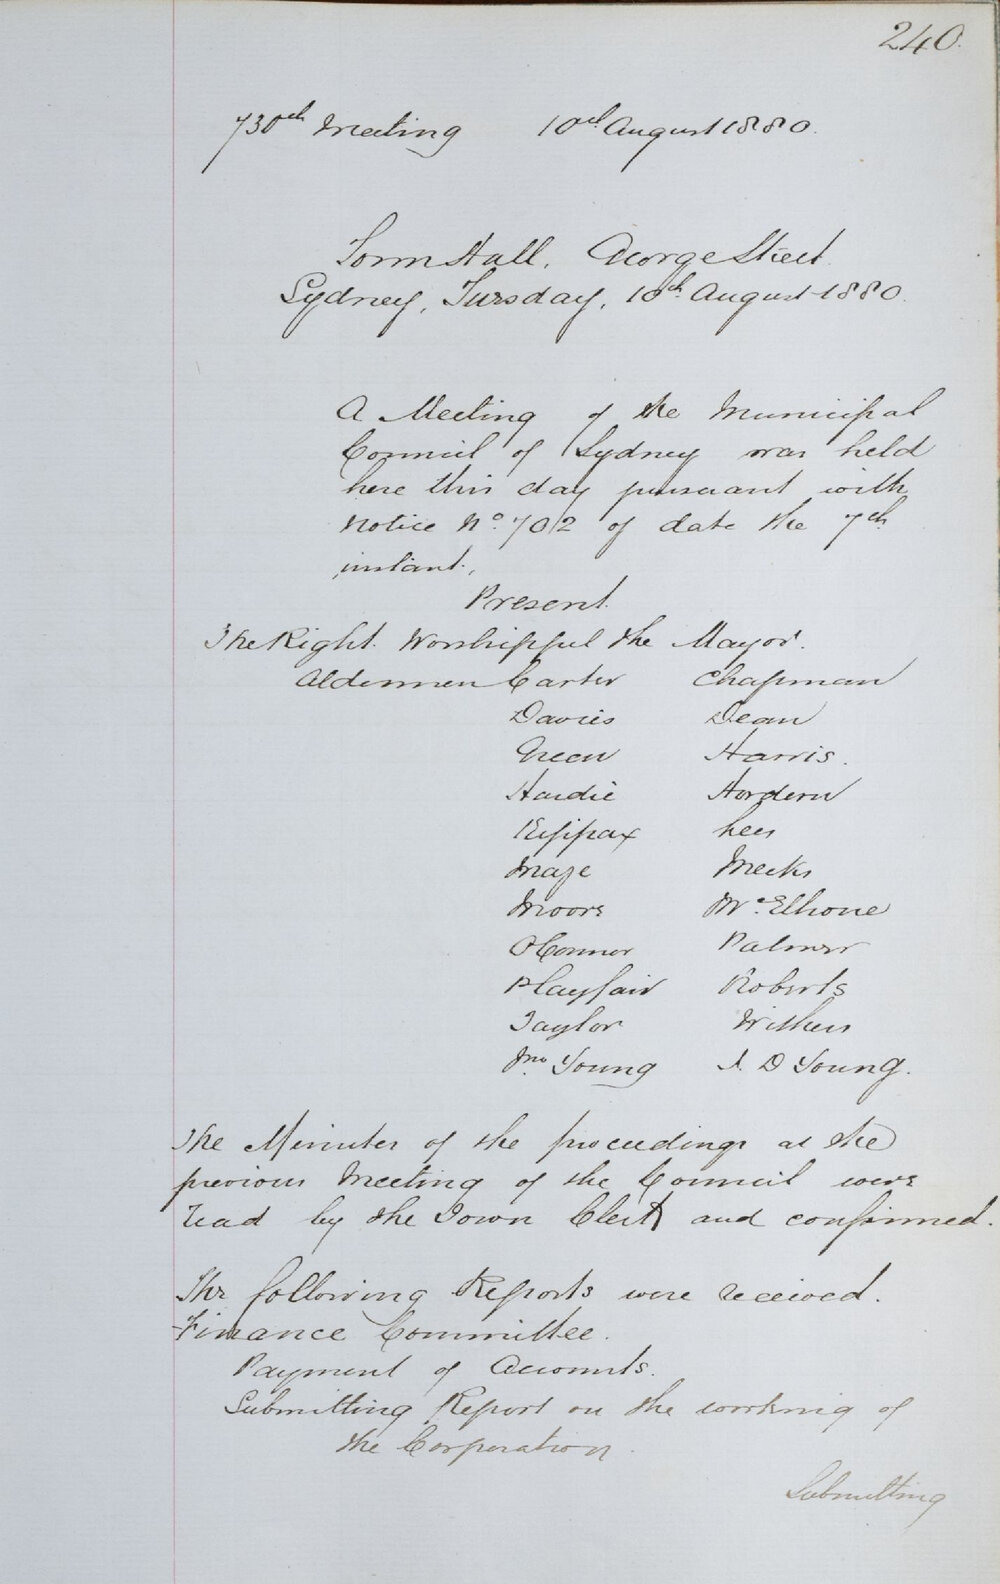 240.
730th Meeting 10th August 1880.
Town Hall, George Street
Sydney, Tuesday, 10th August 1880.
A Meeting of the Municipal
Council of Sydney was held
here this day pursuant with
notice No. 702 of date the 7th
instant.,
Present.
The Right Worshipful the Mayor.
Aldermen Carter Chapman
Davies Dean
Green Harris.
Hardie Hordern
Kippax Lees
Maze Meeks
Moore McElhone
O'Connor Palmer
Playfair Roberts
Taylor Withers
Jno. Young J. D Young.
The Minutes of the proceedings at the
previous Meeting of the Council were
read by the Town Clerk and confirmed.
The following Reports were received.
Finance Committee.
Payment of Accounts.
Submitting Report on the working of
the Corporation.
Submitting